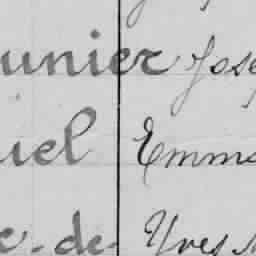 unier Jose
uel Emma
c-de- Yves M